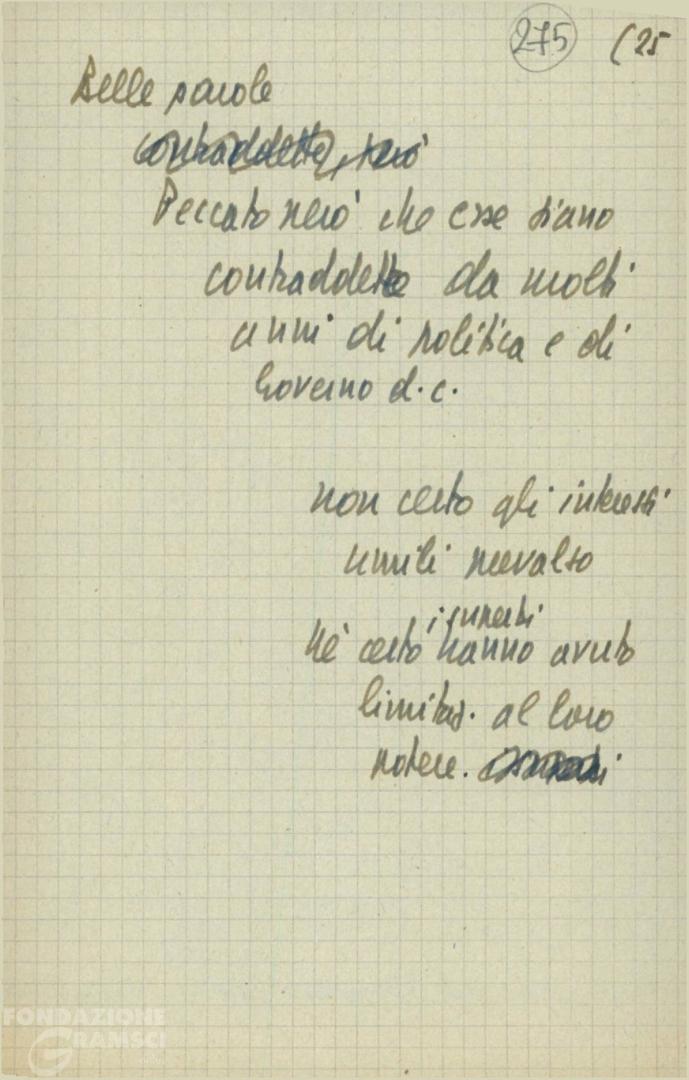 275 (25
Belle parole
contraddette, però
Peccato però che esse siano
contraddette da molti
anni di politica e di
Governo d.c.
non certo gli interessi
umili prevalso
i superbi
Né certo hanno avuto
limitaz. al loro
potere.
FONDAZIONE
GRAMSCI